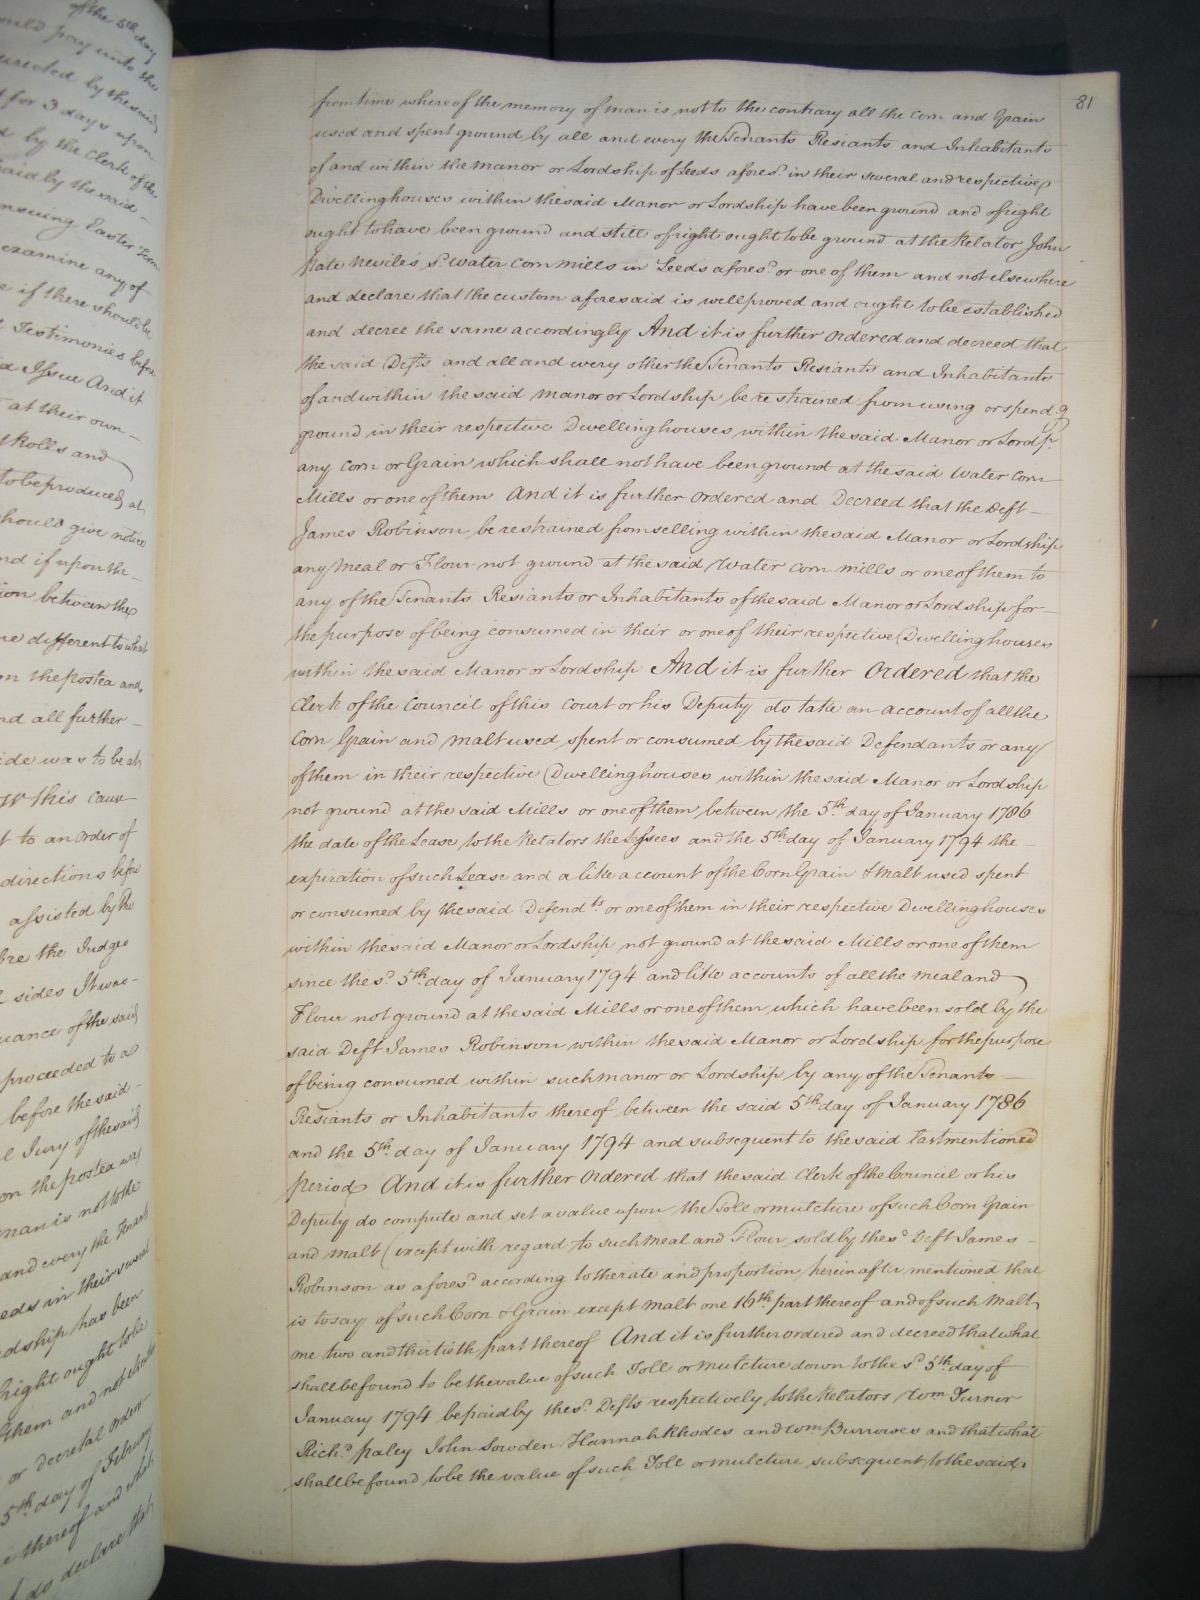 of the 5th day
ould pay unto the
urected by the said
d for 3 days upon
d by the Clerk of the
said by the said -
nsuing Easter Term
examine any of
e if there should be
Testimonies before
d Issue And it
at their own -
Rolls and
to be produced at
should give notice
nd if upon the -
ion between the
me different to what
on the postea and
nd all further -
side was to be at
this cause
t to an order of
directions before
assisted by the
ore the Judges
sides It was -
uance of the said
proceeded to a
before the said -
l Jury of the said
on the postea was
man is not to the
and every the Tenants
eeds in their several
dship has been
right ought to be
them and not elsewhere
or decretal order
5th day of February
thereof and what
do declare that
81
from time whereof the memory of man is not to the contrary all the Corn and Grain
used and spent ground by all and every the Tenants Resiants and Inhabitants
of and within the Manor or Lordship of Leeds afores.d in their several and respective
Dwellinghouses within the said Manor or Lordship have been ground and of right
ought to have been ground and still of right ought to be ground at the Relator John
Pate Nevile's s.d Water Corn Mills in Leeds afores.d or one of them and not elsewhere
and declare that the custom aforesaid is well proved and ought to be established
and decree the same accordingly And it is further Ordered and decreed that
the said Defts and all and every other the Tenants Resiants and Inhabitants
of and within the said Manor or Lordship be restrained from using or spend.g
ground in their respective Dwellinghouses within the said Manor or Lordp.
any Corn or Grain which shall not have been ground at the said Water Corn
Mills or one of them And it is further Ordered and Decreed that the Deft -
James Robinson be restrained from selling within the said Manor or Lordship
any Meal or Flour not ground at the said Water Corn Mills or one of them to
any of the Tenants Resiants or Inhabitants of the said Manor or Lordship for -
the purpose of being consumed in their or one of their respective Dwellinghouses
within the said Manor or Lordship And it is further Ordered that the
Clerk of the Council of this Court or his Deputy do take an account of all the
Corn Grain and Malt used, spent or consumed by the said Defendants or any
of them in their respective Dwellinghouses within the said Manor or Lordship
not ground at the said Mills or one of them between the 5th day of January 1786
the date of the Lease to the Relators the Lessees and the 5th day of January 1794 the -
expiration of such Lease and a like account of the Corn Grain & Malt used spent
or consumed by the said Defend.ts or one of them in their respective Dwellinghouses
within the said Manor or Lordship not ground at the said Mills or one of them
since the s.d 5th day of January 1794 and like accounts of all the Meal and
Flour not ground at the said Mills or one of them which have been sold by the
said Deft James Robinson within the said Manor or Lordship for the purpose
of being consumed within such Manor or Lordship by any of the Tenants -
Resiants or Inhabitants thereof between the said 5th day of January 1786
and the 5th day of January 1794 and subsequent to the said last mentioned
period And it is further Ordered that the said Clerk of the Council or his
Deputy do compute and set a value upon the Toll or mulcture of such Corn Grain
and Malt (except with regard to such Meal and Flour sold by the s.d Deft James -
Robinson as afores.d according to the rate and proportion hereinafter mentioned that
is to say of such Corn & Grain except Malt one 16th part thereof and of such Malt
one two and thirtieth part thereof And it is further ordered and decreed that what
shall be found to be the value of such Toll or mulcture down to the s.d 5th day of
January 1794 be paid by the s.d Defts respectively to the Relators Wm. Turner
Rich.d Paley John Sowden Hannah Rhodes and Wm. Burrows and that what
shall be found to be the value of such Toll or mulcture subsequent to the said